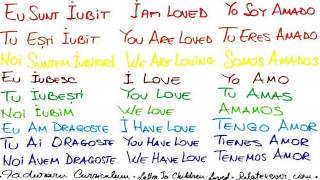 Eu Sunt Iubit I am Loved Yo Soy Amado
Tu Ești Iubit You Are Loved Tu Eres Amado
Noi Suntem Iubitori We Are Loving Somos Amados
Eu Iubesc I Love Yo Amo
Tu Iubești You Love Tu Amas
Noi Iubim We Love Amamos
Eu Am Dragoste I Have Love Tengo Amor
Tu Ai Dragoste You Have Love Tienes Amor
Noi Avem Dragoste We Have Love Tenemos Amor
Curriculum. Letter To Children. Loved.